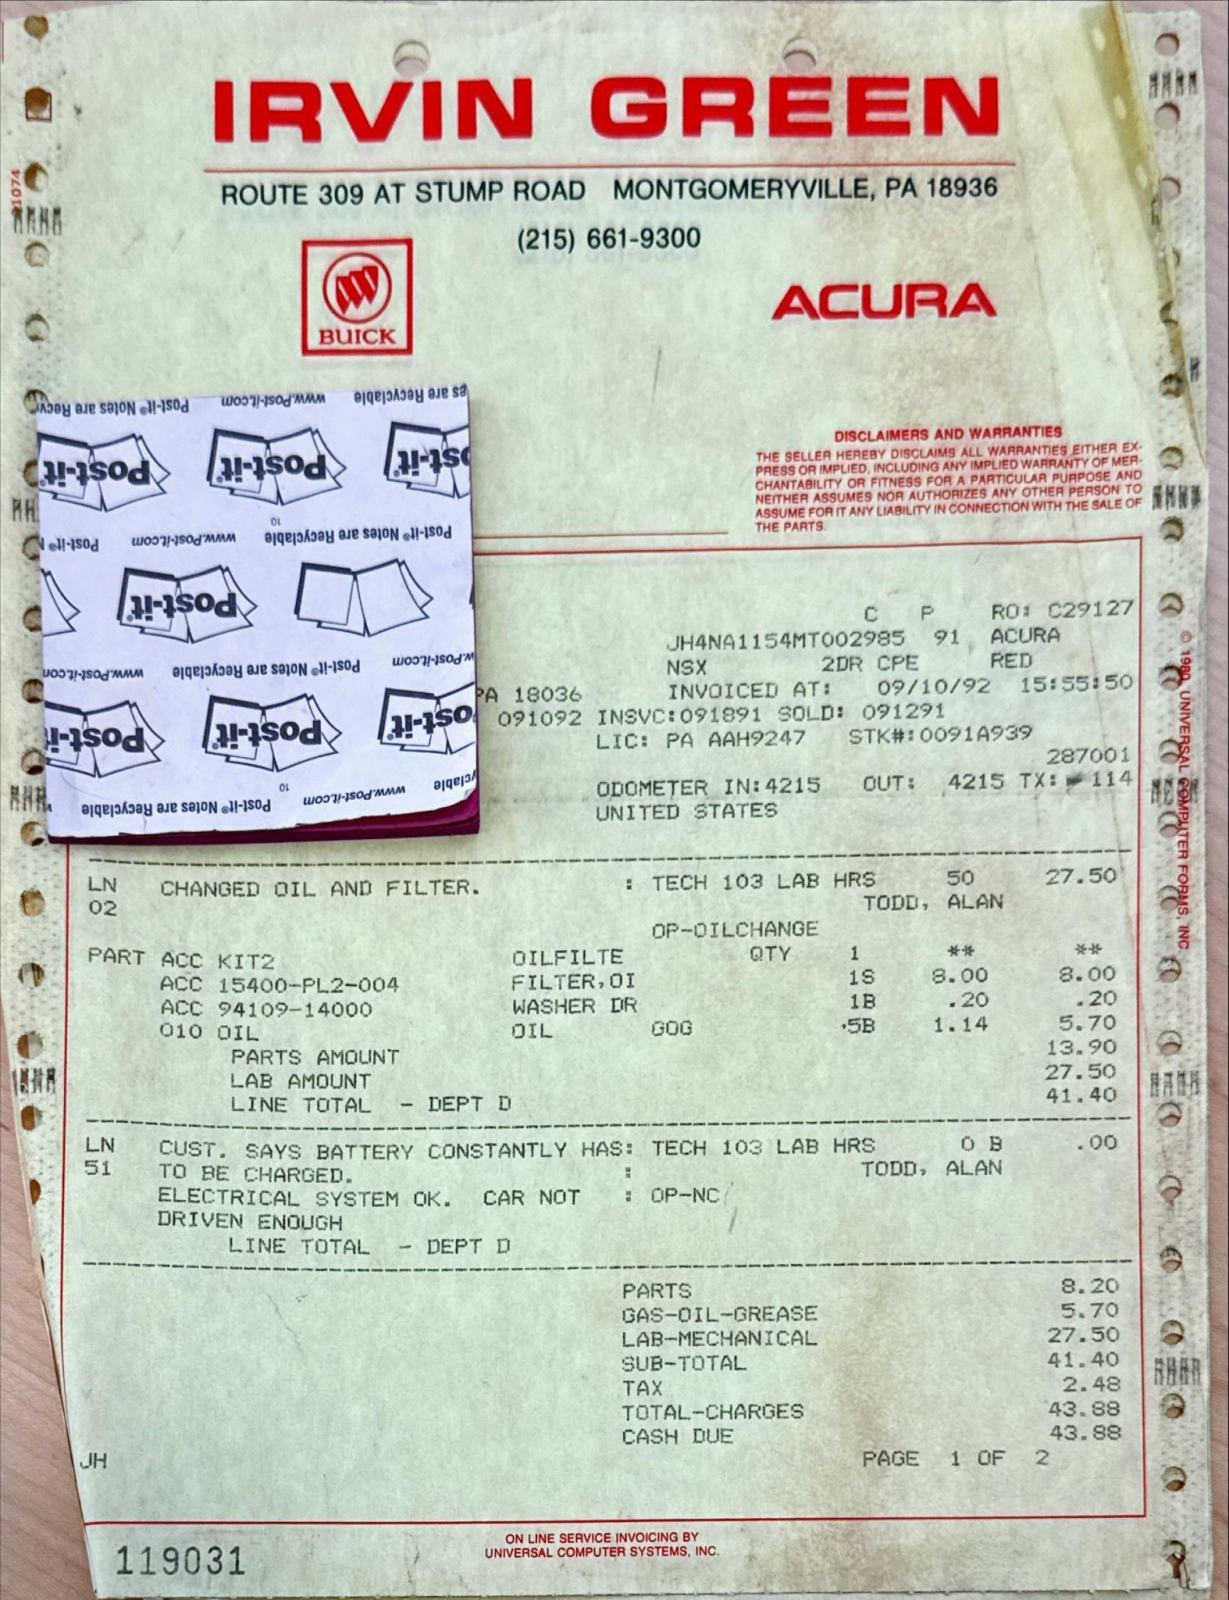 IRVIN GREEN
ROUTE 309 AT STUMP ROAD MONTGOMERYVILLE, PA 18936
(215) 661-9300
BUICK
ACURA
DISCLAIMERS AND WARRANTIES
THE SELLER HEREBY DISCLAIMS ALL WARRANTIES EITHER EX-
PRESS OR IMPLIED, INCLUDING ANY IMPLIED WARRANTY OF MER-
CHANTABILITY OR FITNESS FOR A PARTICULAR PURPOSE AND
NEITHER ASSUMES NOR AUTHORIZES ANY OTHER PERSON TO
ASSUME FOR IT ANY LIABILITY IN CONNECTION WITH THE SALE OF
THE PARTS.
es are Recyclable www.Post-it.com Post-it® Notes are Recyc
Post-it Post-it Post-it
10
Post-it® Notes are Recyclable www.Post-it.com Post-it® N
Post-it
www.Post-it.com Post-it® Notes are Recyclable www.Post-it.com
Post-it Post-it Post-it
10
clable www.Post-it.com Post-it® Notes are Recyclable
C P RO: C29127
JH4NA1154MT002985 91 ACURA
NSX 2DR CPE RED
PA 18036 INVOICED AT: 09/10/92 15:55:50
091092 INSVC:091891 SOLD: 091291
LIC: PA AAH9247 STK#:0091A939
287001
ODOMETER IN:4215 OUT: 4215 TX: 114
UNITED STATES
LN CHANGED OIL AND FILTER. : TECH 103 LAB HRS 50 27.50
02 TODD, ALAN
OP-OILCHANGE
PART ACC KIT2 OILFILTE QTY 1 ** **
ACC 15400-PL2-004 FILTER,OI 1S 8.00 8.00
ACC 94109-14000 WASHER DR 1B .20 .20
010 OIL OIL GOG 5B 1.14 5.70
PARTS AMOUNT 13.90
LAB AMOUNT 27.50
LINE TOTAL - DEPT D 41.40
LN CUST. SAYS BATTERY CONSTANTLY HAS: TECH 103 LAB HRS 0 B .00
51 TO BE CHARGED. : TODD, ALAN
ELECTRICAL SYSTEM OK. CAR NOT : OP-NC
DRIVEN ENOUGH
LINE TOTAL - DEPT D
PARTS 8.20
GAS-OIL-GREASE 5.70
LAB-MECHANICAL 27.50
SUB-TOTAL 41.40
TAX 2.48
TOTAL-CHARGES 43.88
CASH DUE 43.88
JH PAGE 1 OF 2
ON LINE SERVICE INVOICING BY
UNIVERSAL COMPUTER SYSTEMS, INC.
119031
© 1980, UNIVERSAL COMPUTER FORMS, INC